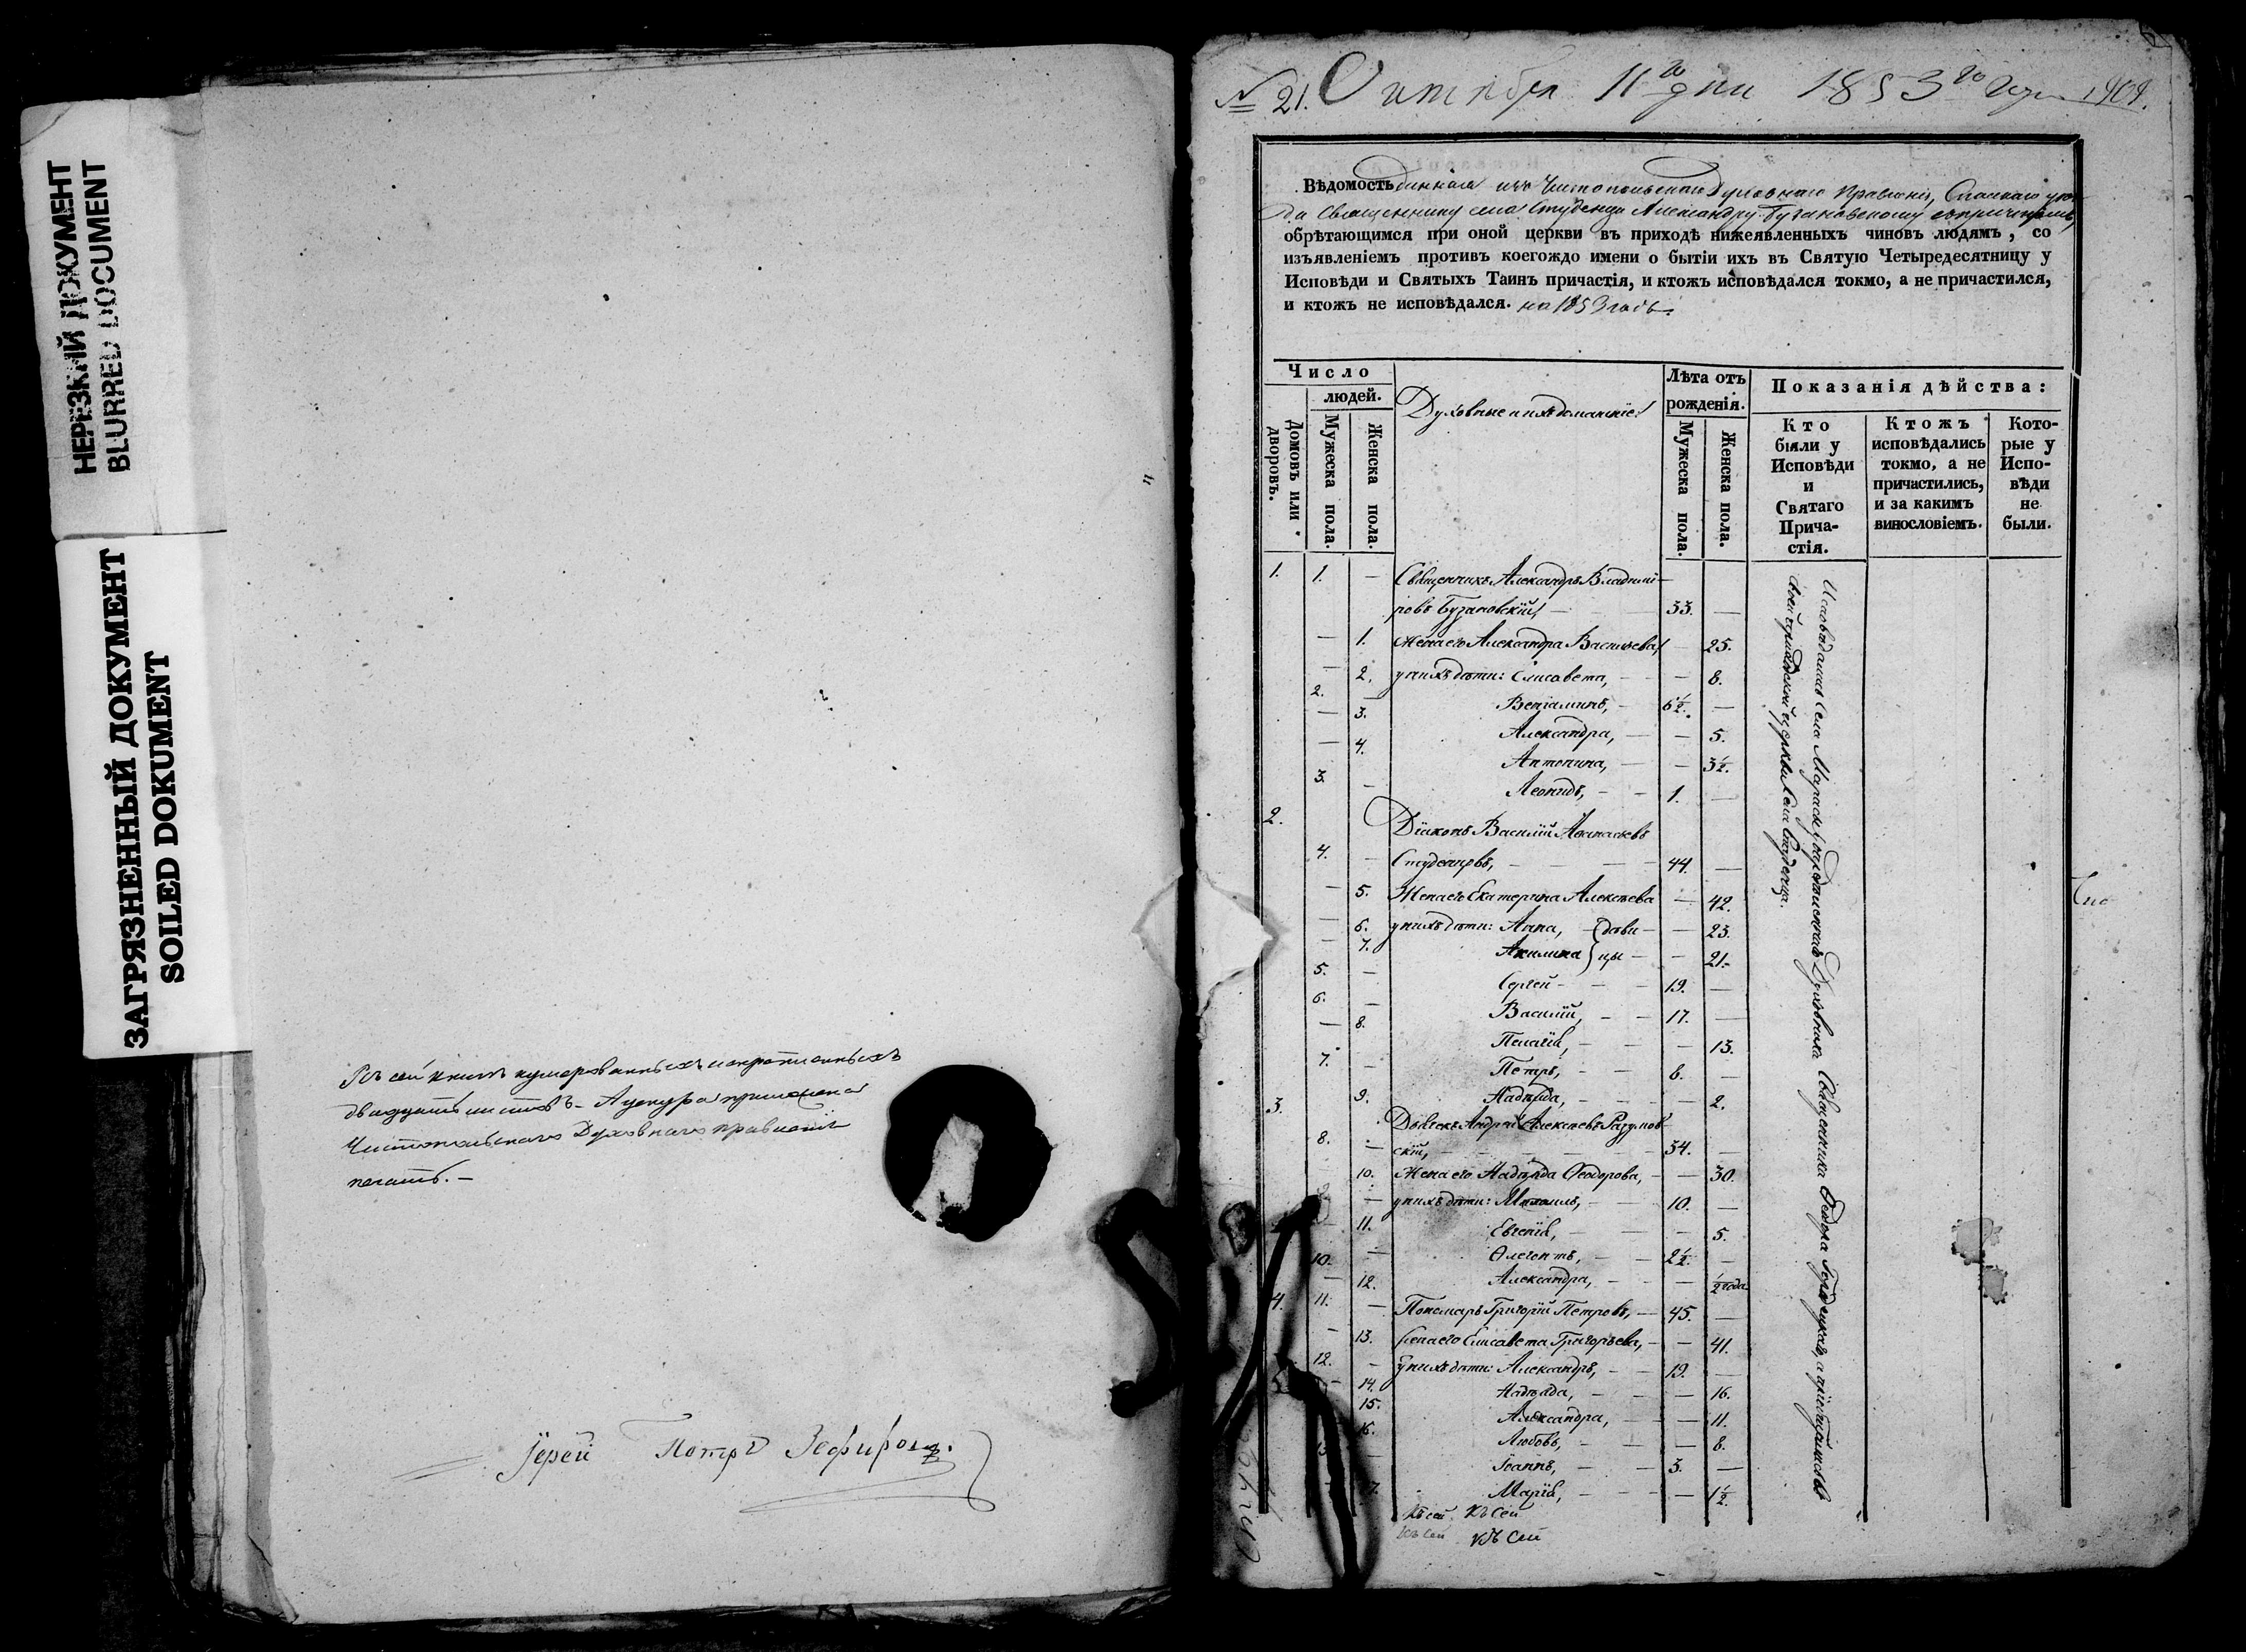 НЕРЕЗКИЙ ДОКУМЕНТ
BLURRED DOCUMENT
ЗАГРЯЗНЕННЫЙ ДОКУМЕНТ
SOILED DOKUMENT
двадцать листовъ.
Чистопольскаго Духовнаго правленія
печать. –
Іерей Петръ Зефировъ.
№ 21. Октября 11го дня 1853го года
Вѣдомость данная изъ Чистопольскаго Духовнаго Правленія, Спасскаго уѣз-
да Священнику села Студенца Александру Бузановскому съ причтомъ,
обрѣтающимся при оной церкви въ приходѣ нижеявленныхъ чиновъ людямъ, со
изъявленіемъ противъ коегождо имени о бытіи ихъ въ Святую Четыредесятницу у
Исповѣди и Святыхъ Таинъ причастія, и ктожъ исповѣдался токмо, а не причастился,
и ктожъ не исповѣдался. на 1853 годъ.
Число
людей.
Домовъ или дворовъ.
Мужеска пола.
Женска пола.
Духовные и ихъ домашніе:
Лѣта отъ
рожденія.
Мужеска пола.
Женска пола.
Показанія дѣйства:
Кто
были у
Исповѣди
и
Святаго
Прича-
стія.
Ктожъ
исповѣдались
токмо, а не
причастились,
и за какимъ
винословіемъ.
Кото-
рые у
Испо-
вѣди
не
были.
1. 1. — Священникъ Александръ Владимі-
ровъ Бузановскій, — 33. —
— 1. Жена его Александра Васильева, — 25.
— 2. у нихъ дѣти: Елисавета, — — 8.
2. — Веніаминъ, — 6½. —
— 3. Александра, — — 5.
— 4. Антонина, — — 3½.
3. — Леонидъ, — — 1. —
2. Діаконъ Василій Аѳанасьевъ
4. — Студенцовъ, — — — 44. —
— 5. Жена его Екатерина Алексѣева — 42.
— 6. у нихъ дѣти: Анна, — дѣви- — — 23.
— 7. Акилина цы — — 21.
5. — Сергей — — — 19. —
6. — Василій, — — 17. —
— 8. Пелагія, — — — 13.
7. — Петръ, — — 6. —
9. Надежда, — — — 2.
3. Дьячекъ Андрей Алексѣевъ Разумов-
8. — скій, — 34. —
10. Жена его Надежда Ѳеодорова, — — 30.
— у нихъ дѣти: Михаилъ, — 10. —
11. Евгенія, — — — 5.
10. — Флегонтъ, — — 2½. —
— 12. Александра, — — — ½ года
4. 11. — Пономарь Григорій Петровъ, — 45. —
— 13. Жена его Елисавета Григорьева, — — 41.
12. — У нихъ дѣти: Александръ, — 19. —
— 14. Надежда, — — — 16.
15. Александра, — — 11.
16. Любовь, — — — 8.
— Іоаннъ, — — 3. —
17. Марія, — — — 1½.
Исповѣдались села
Духовника Священника Ѳедора
своей приходской церкви села Студенца.
Къ сей Къ Сей
Къ Сей Къ Сей